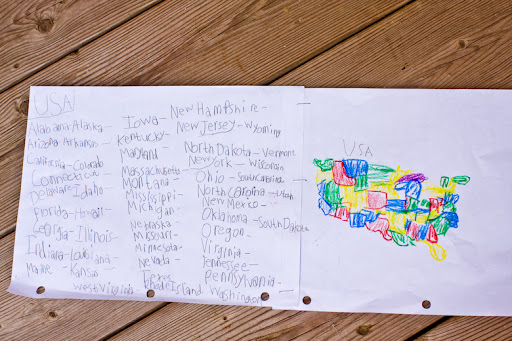 USA
Alabama-Alaska
Arizona-Arkansas
California-Colorado
Connecticut
Delaware-Idaho
Florida-Hawaii
Georgia-Illinois
Indiana-Louisiana
Maine-Kansas
West Virginia
Iowa-
Kentucky-
Maryland
Massachusetts
Montana-
Mississippi
Michigan-
Nebraska
Missouri-
Minnesota-
Nevada-
Texas
Rhode Island
New Hampshire-
New Jersey-Wyoming
North Dakota-Vermont
New York-Wisconsin
Ohio-South Carolina
North Carolina-Utah
New Mexico-
Oklahoma-South Dakota
Oregon-
Virginia-
Tennessee-
Pennsylvania-
Washington
USA